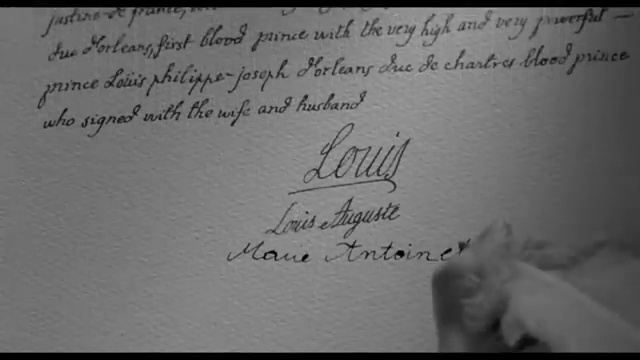 justine de france,
duc d'orleans, first blood prince with the very high and very powerful —
prince Louis philippe-joseph d'orleans duc de chartres blood prince
who signed with the wife and husband
Louis
Louis Auguste
Marie Antoine